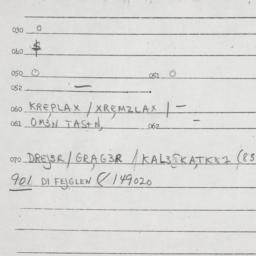 030 0
040 $
050 0 051 0
052 —
060 KREPLAX / XREMZLAX | —
061 OM3N TAS+N, 062 —
070 DREJ3R / GRAG3R / KAL35KATK52 (85
901 DI FEJGLEN @ /149020